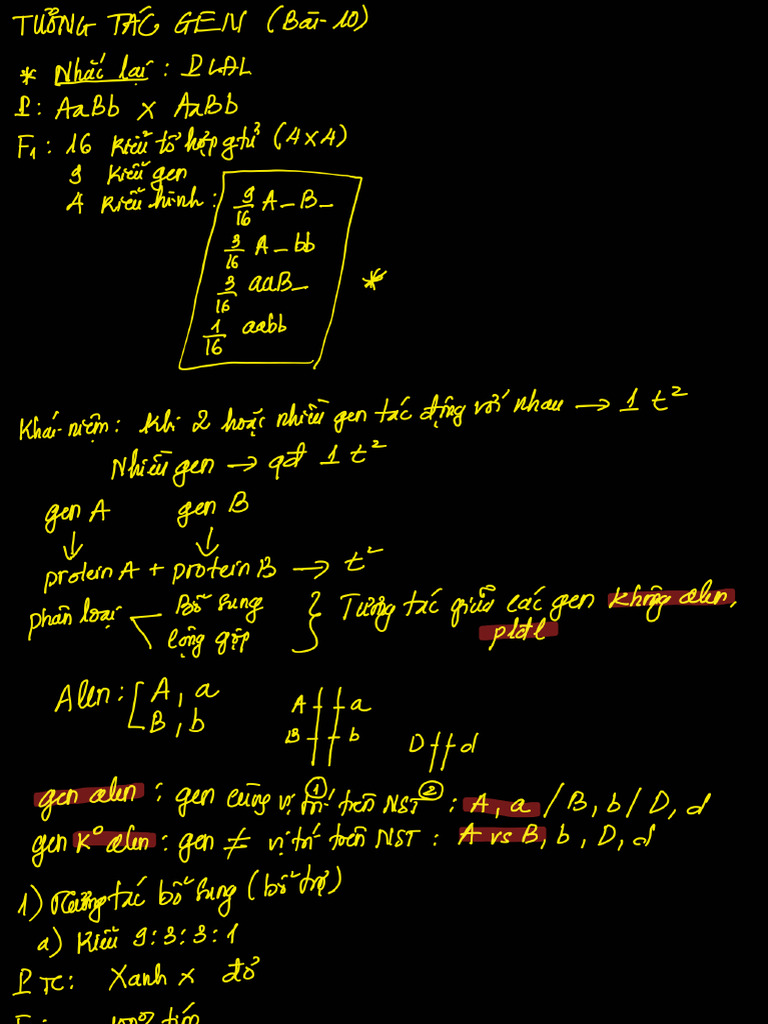 TƯƠNG TÁC GEN (Bài 10)
* Nhắc lại : PLĐL
P: AaBb x AaBb
F1: 16 kiểu tổ hợp g.tử (4x4)
9 kiểu gen
4 kiểu hình : 9/16 A_B_
3/16 A_bb
3/16 aaB_ *
1/16 aabb
Khái niệm: khi 2 hoặc nhiều gen tác động với nhau → 1 t²
Nhiều gen → qđ 1 t²
gen A gen B
↓ ↓
protein A + protein B → t²
phân loại Bổ sung } Tương tác giữa các gen không alen,
Cộng gộp pldl
Alen: A, a
B, b
A a
B b
D d
gen alen : gen cùng vị trí ① trên NST ② : A, a / B, b / D, d
gen k° alen : gen ≠ vị trí trên NST : A vs B, b, D, d
1) Tương tác bổ sung (bổ trợ)
a) Kiểu 9:3:3:1
P TC: Xanh x đỏ